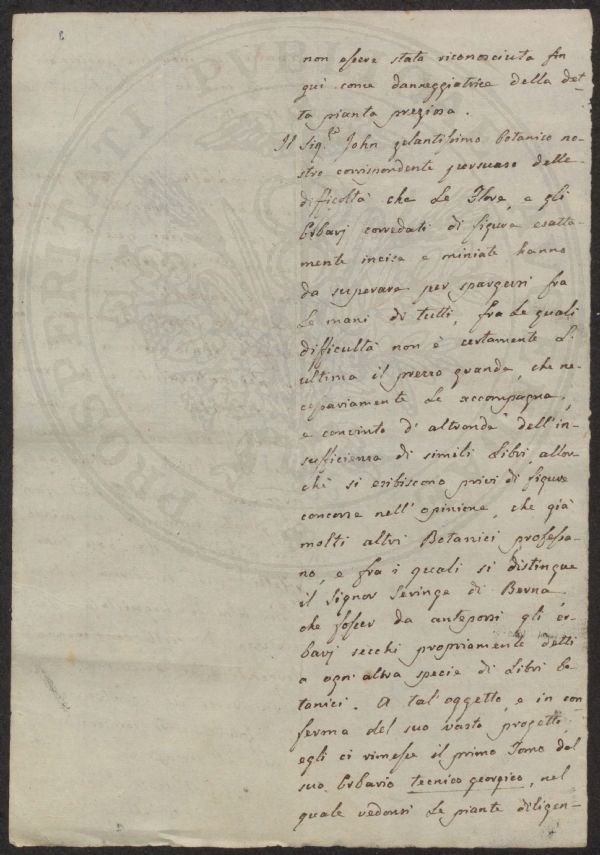 non essere stata riconosciuta fin
qui come danneggiatrice della det-
ta pianta preziosa.
Il Sig.r John zelantissimo botanico no-
stro corrispondente persuaso delle
difficoltà che le Flore, e gli
Erbarj corredati di figure esatta-
mente incise e miniate hanno
da superare per spargersi fra
le mani di tutti, fra le quali
difficultà non è certamente l'
ultima il prezzo grande, che ne-
cessariamente le accompagna,
e convinto d'altronde dell'in-
sufficienza di simili libri, allor
chè si esibiscono privi di figure
concorre nell'opinione, che già
molti altri Botanici professa-
no, e fra i quali si distingue
il Signor Seringe di Berna,
che fosser da anteporsi gli er-
barj secchi propriamente detti
a ogn'altra specie di libri bo-
tanici. A tal'oggetto, e in con
ferma del suo vasto progetto,
egli ci rimesse il primo Tomo del
suo Erbario tecnico georgico, nel
quale vedonsi le piante diligen-